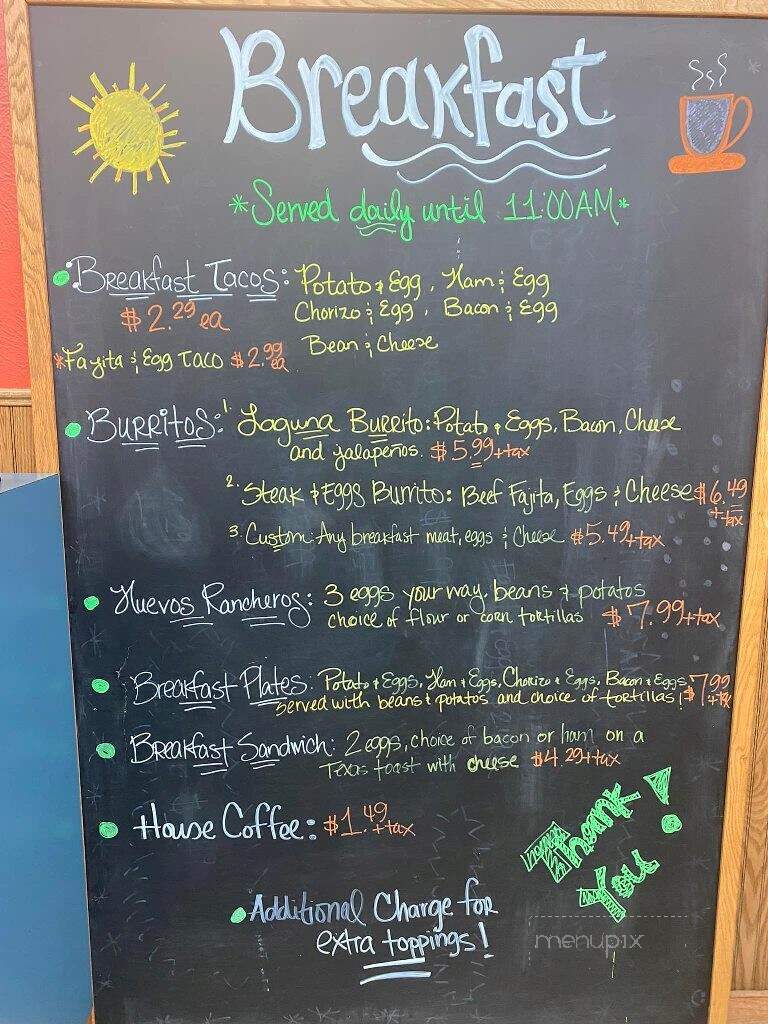 Breakfast
*Served daily until 11:00AM*
Breakfast Tacos: Potato & Egg, Ham & Egg
$2.29 ea Chorizo & Egg, Bacon & Egg
Bean & Cheese
*Fajita & Egg Taco $2.99 ea
Burritos: 1. Laguna Burrito: Potato & Eggs, Bacon, Cheese
and jalapeños. $5.99+tax
2. Steak & Eggs Burrito: Beef Fajita, Eggs & Cheese $6.49
+tax
3. Custom: Any breakfast meat, eggs & Cheese $5.49+tax
Huevos Rancheros: 3 eggs your way, beans & potatos
choice of flour or corn tortillas $7.99+tax
Breakfast Plates: Potato & Eggs, Ham & Eggs, Chorizo & Eggs, Bacon & Eggs $7.99
served with beans & potatos and choice of tortillas! +tax
Breakfast Sandwich: 2 eggs, choice of bacon or ham on a
Texas toast with cheese $4.29+tax
House Coffee: $1.49+tax
Thank
You!
Additional Charge for
extra toppings!
menupix